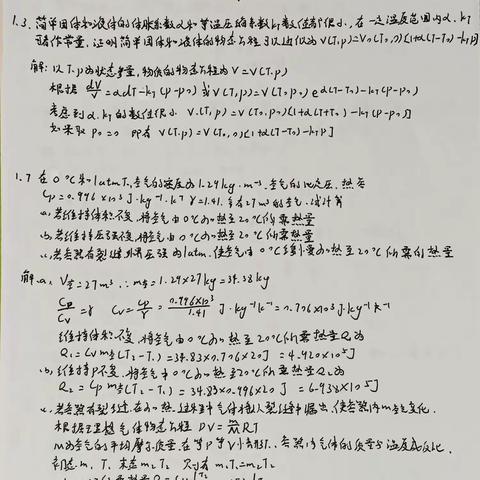 1.3. 简单固体和液体的体胀系数α和等温压缩系数kT数值都很小,在一定温度范围内α、kT
可看作常量,证明简单固体和液体的物态方程可以近似为V(T,p)=V0(T0,0)[1+α(T-T0)-kTp]
解:以T,p为状态参量,物质的物态方程为 V=V(T,p)
根据 dV/V=αdT-kT(p-p0) 或 V(T,p)=V(T0,p0)e^α(T-T0)-kT(p-p0)
考虑到α、kT的数值很小 V(T,p)=V(T0,p0)[1+α(T-T0)-kT(p-p0)]
如果取p0=0 即有 V(T,p)=V(T0,0)[1+α(T-T0)-kTp]
1.7 在0℃和1atm下,空气的密度为1.29kg·m⁻³,空气的定压热容
Cp=0.996×10³J·kg⁻¹·k⁻¹ γ=1.41.今有27m³的空气,试计算
a、若维持体积不变,将空气由0℃加热至20℃所需热量
b、若维持压强不变,将空气由0℃加热至20℃所需热量
c、若容器有裂缝外界压强为1atm,使空气由0℃缓慢加热至20℃所需的热量
解:a、V空=27m³ ∴m空=1.29×27kg=34.38kg
Cp/Cv=γ Cv=Cp/γ=0.996×10³/1.41 J·kg⁻¹k⁻¹=0.706×10³J·kg⁻¹k⁻¹
维持体积不变,将空气由0℃加热至20℃所需热量Q1为
Q1=Cv m空(T2-T1)=34.83×0.706×20J=4.920×10⁵J
b、维持p不变,将空气由0℃加热至20℃所需热量Q2为
Q2=Cp m空(T2-T1)=34.83×0.996×20J=6.938×10⁵J
c、若容器有裂缝,在加热过程中气体将从裂缝中漏出,使容器内m空变化.
根据理想气体物态方程 pV=m/M RT
M为空气的平均摩尔质量,在等p等V情形下,容器内气体的质量与温度成反比.
初态m1 T1 末态m2T2 则有 m1T1=m2T2